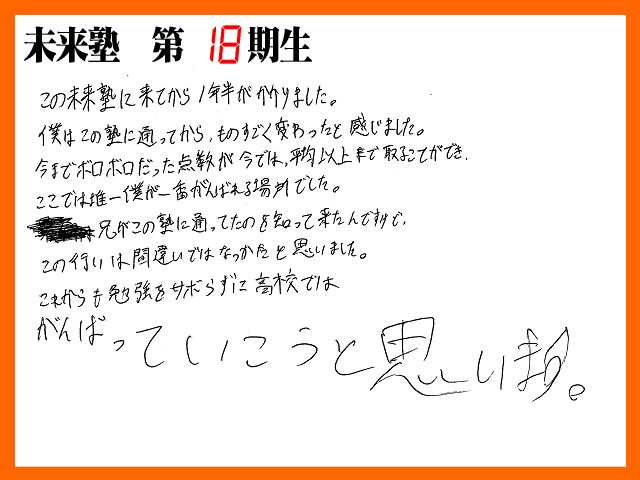 未来塾 第 18期生
この未来塾に来てから1年半がかかりました。
僕はこの塾に通ってから、ものすごく変わったと感じました。
今までボロボロだった点数が今では、平均以上まで取ることができ、
ここでは唯一僕が一番がんばれる場所でした。
兄がこの塾に通ってたのを知って来たんですが、
この行いは間違いではなかったと思いました。
これからも勉強をサボらずに高校では
がんばっていこうと思います。